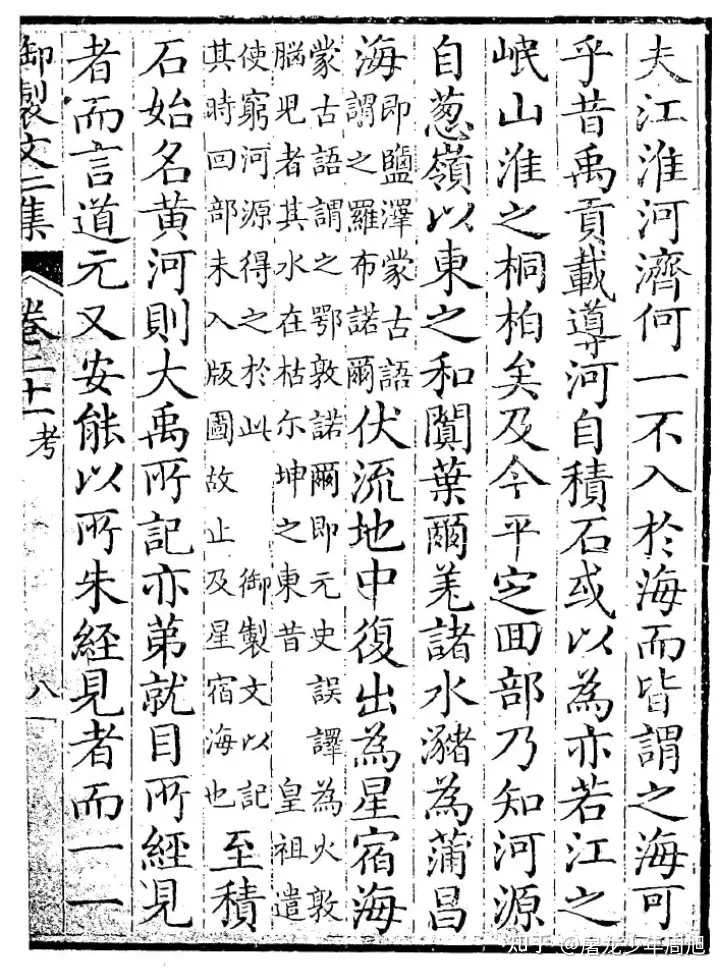 夫江淮河濟何一不入於海而皆謂之海可
乎昔禹貢載導河自積石或以為亦若江之
岷山淮之桐柏矣及今平定囬部乃知河源
自葱嶺以東之和闐葉爾羌諸水瀦為蒲昌
海即鹽澤蒙古語謂之羅布諾爾伏流地中復出為星宿海
蒙古語謂之鄂敦諾爾即元史誤譯為火敦
腦兒者其水在枯尔坤之東昔 皇祖遣
使窮河源得之於此 御製文以記
其時回部未入版圖故止及星宿海也 至積
石始名黄河則大禹所記亦第就目所經見
者而言道元又安能以所未經見者而一一
御製文二集 卷二十一 考 八
知乎 @屠龙少年周旭